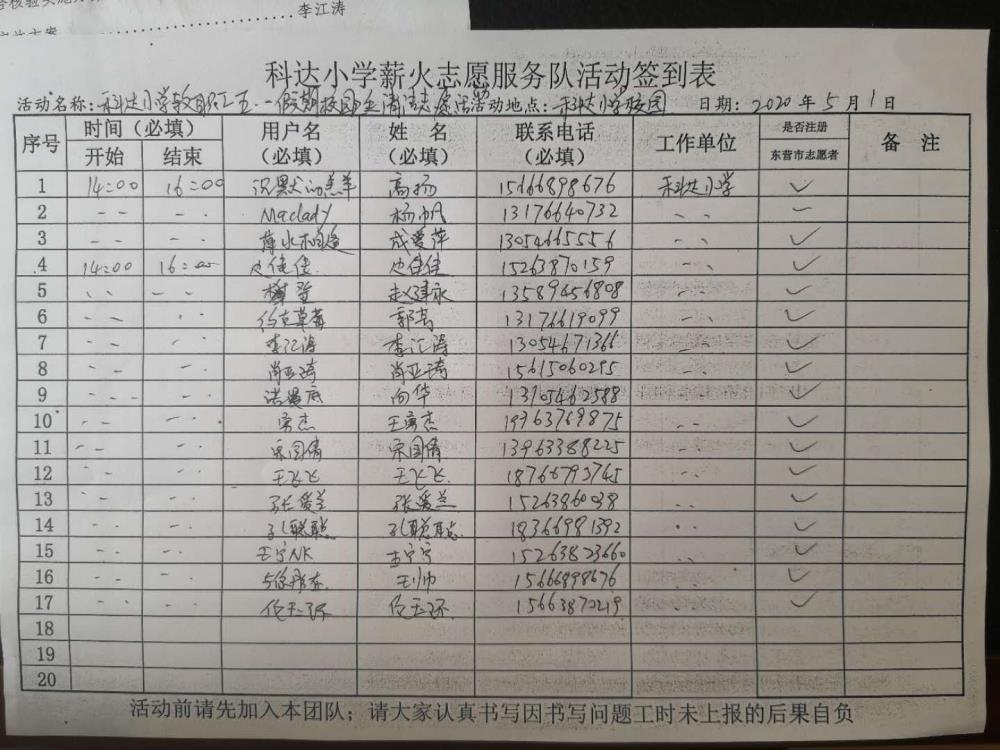 李江涛
科达小学薪火志愿服务队活动签到表
活动名称：科达小学教职工五一假期校园 活动地点：科达小学校园 日期：2020年5月1日
序号 时间（必填） 用户名（必填） 姓 名（必填） 联系电话（必填） 工作单位 是否注册 备 注
开始 结束 东营市志愿者
1 14:00 16:00 沉默的羔羊 高扬 15666898676 科达小学 ✓
2 Maclady 杨帆 13176640732
3 成爱萍 13054665556 ✓
4 14:00 16:00 佳佳 15263870159 ✓
5 赵建永 13589456808 ✓
6 约克草莓 13176619099 ✓
7 李汇涛 李汇涛 13054671366 ✓
8 肖亚琦 肖亚琦 15615060295 ✓
9 诺曼底 向华 ✓
10 勇杰 王勇杰 19963769875 ✓
11 宋国倩 宋国倩 13963388225 ✓
12 王飞飞 王飞飞 18766793745 ✓
13 张爱兰 张爱兰 15263860038 ✓
14 孔聪聪 孔聪聪 18366981392 ✓
15 王宁NK 王宁宁 15263823660 ✓
16 王帅 15666898676 ✓
17 任玉环 任玉环 15663870219 ✓
18
19
20
活动前请先加入本团队；请大家认真书写因书写问题工时未上报的后果自负